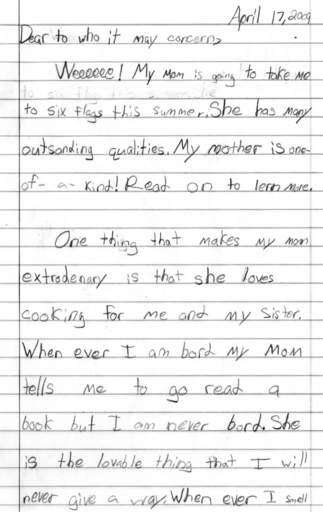 April 17, 2009
Dear to who it may concern,
Weeeeee! My Mom is going to take me
to six flags this summer. She has many
outsanding qualities. My mother is one-
of-a-kind! Read on to lern more.
One thing that makes my mom
extrodenary is that she loves
cooking for me and my sister.
When ever I am bord my Mom
tells me to go read a
book but I am never bord. She
is the lovable thing that I will
never give a way. When ever I smell